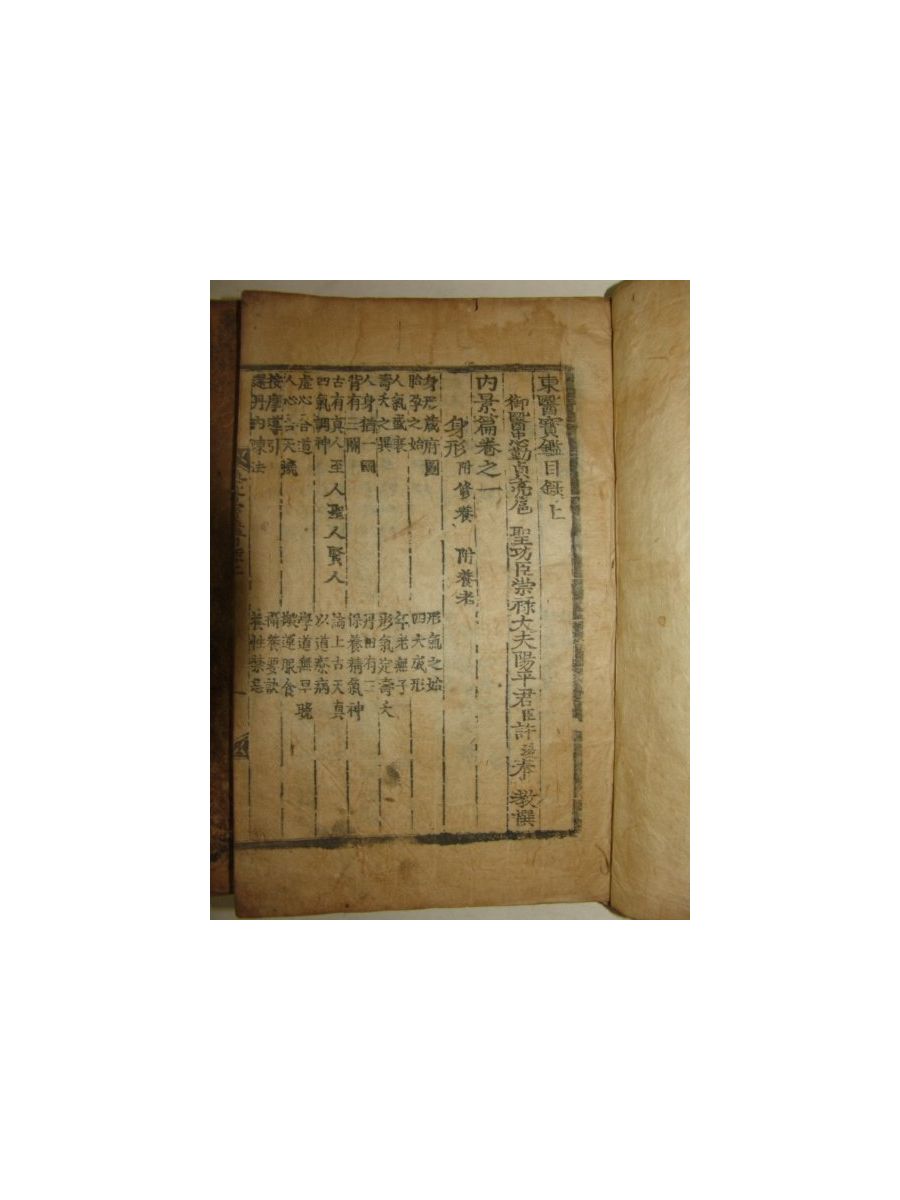 東醫寶鑑目錄上
御醫忠勤貞亮扈 聖功臣崇祿大夫陽平君臣許浚奉 教撰
內景篇卷之一
身形 附修養 附養老
身形藏府圖 形氣之始
胎孕之始 四大成形
人氣盛衰 年老無子
壽夭之異 形氣定壽夭
人身猶一國 丹田有三
背有三關 保養精氣神
古有真人至人聖人賢人 論上古天真
四氣調神 以道療病
虛心合道 學道無早晚
人心合天機 搬運服食
按摩導引 攝養要訣
還丹內煉法 養性禁忌